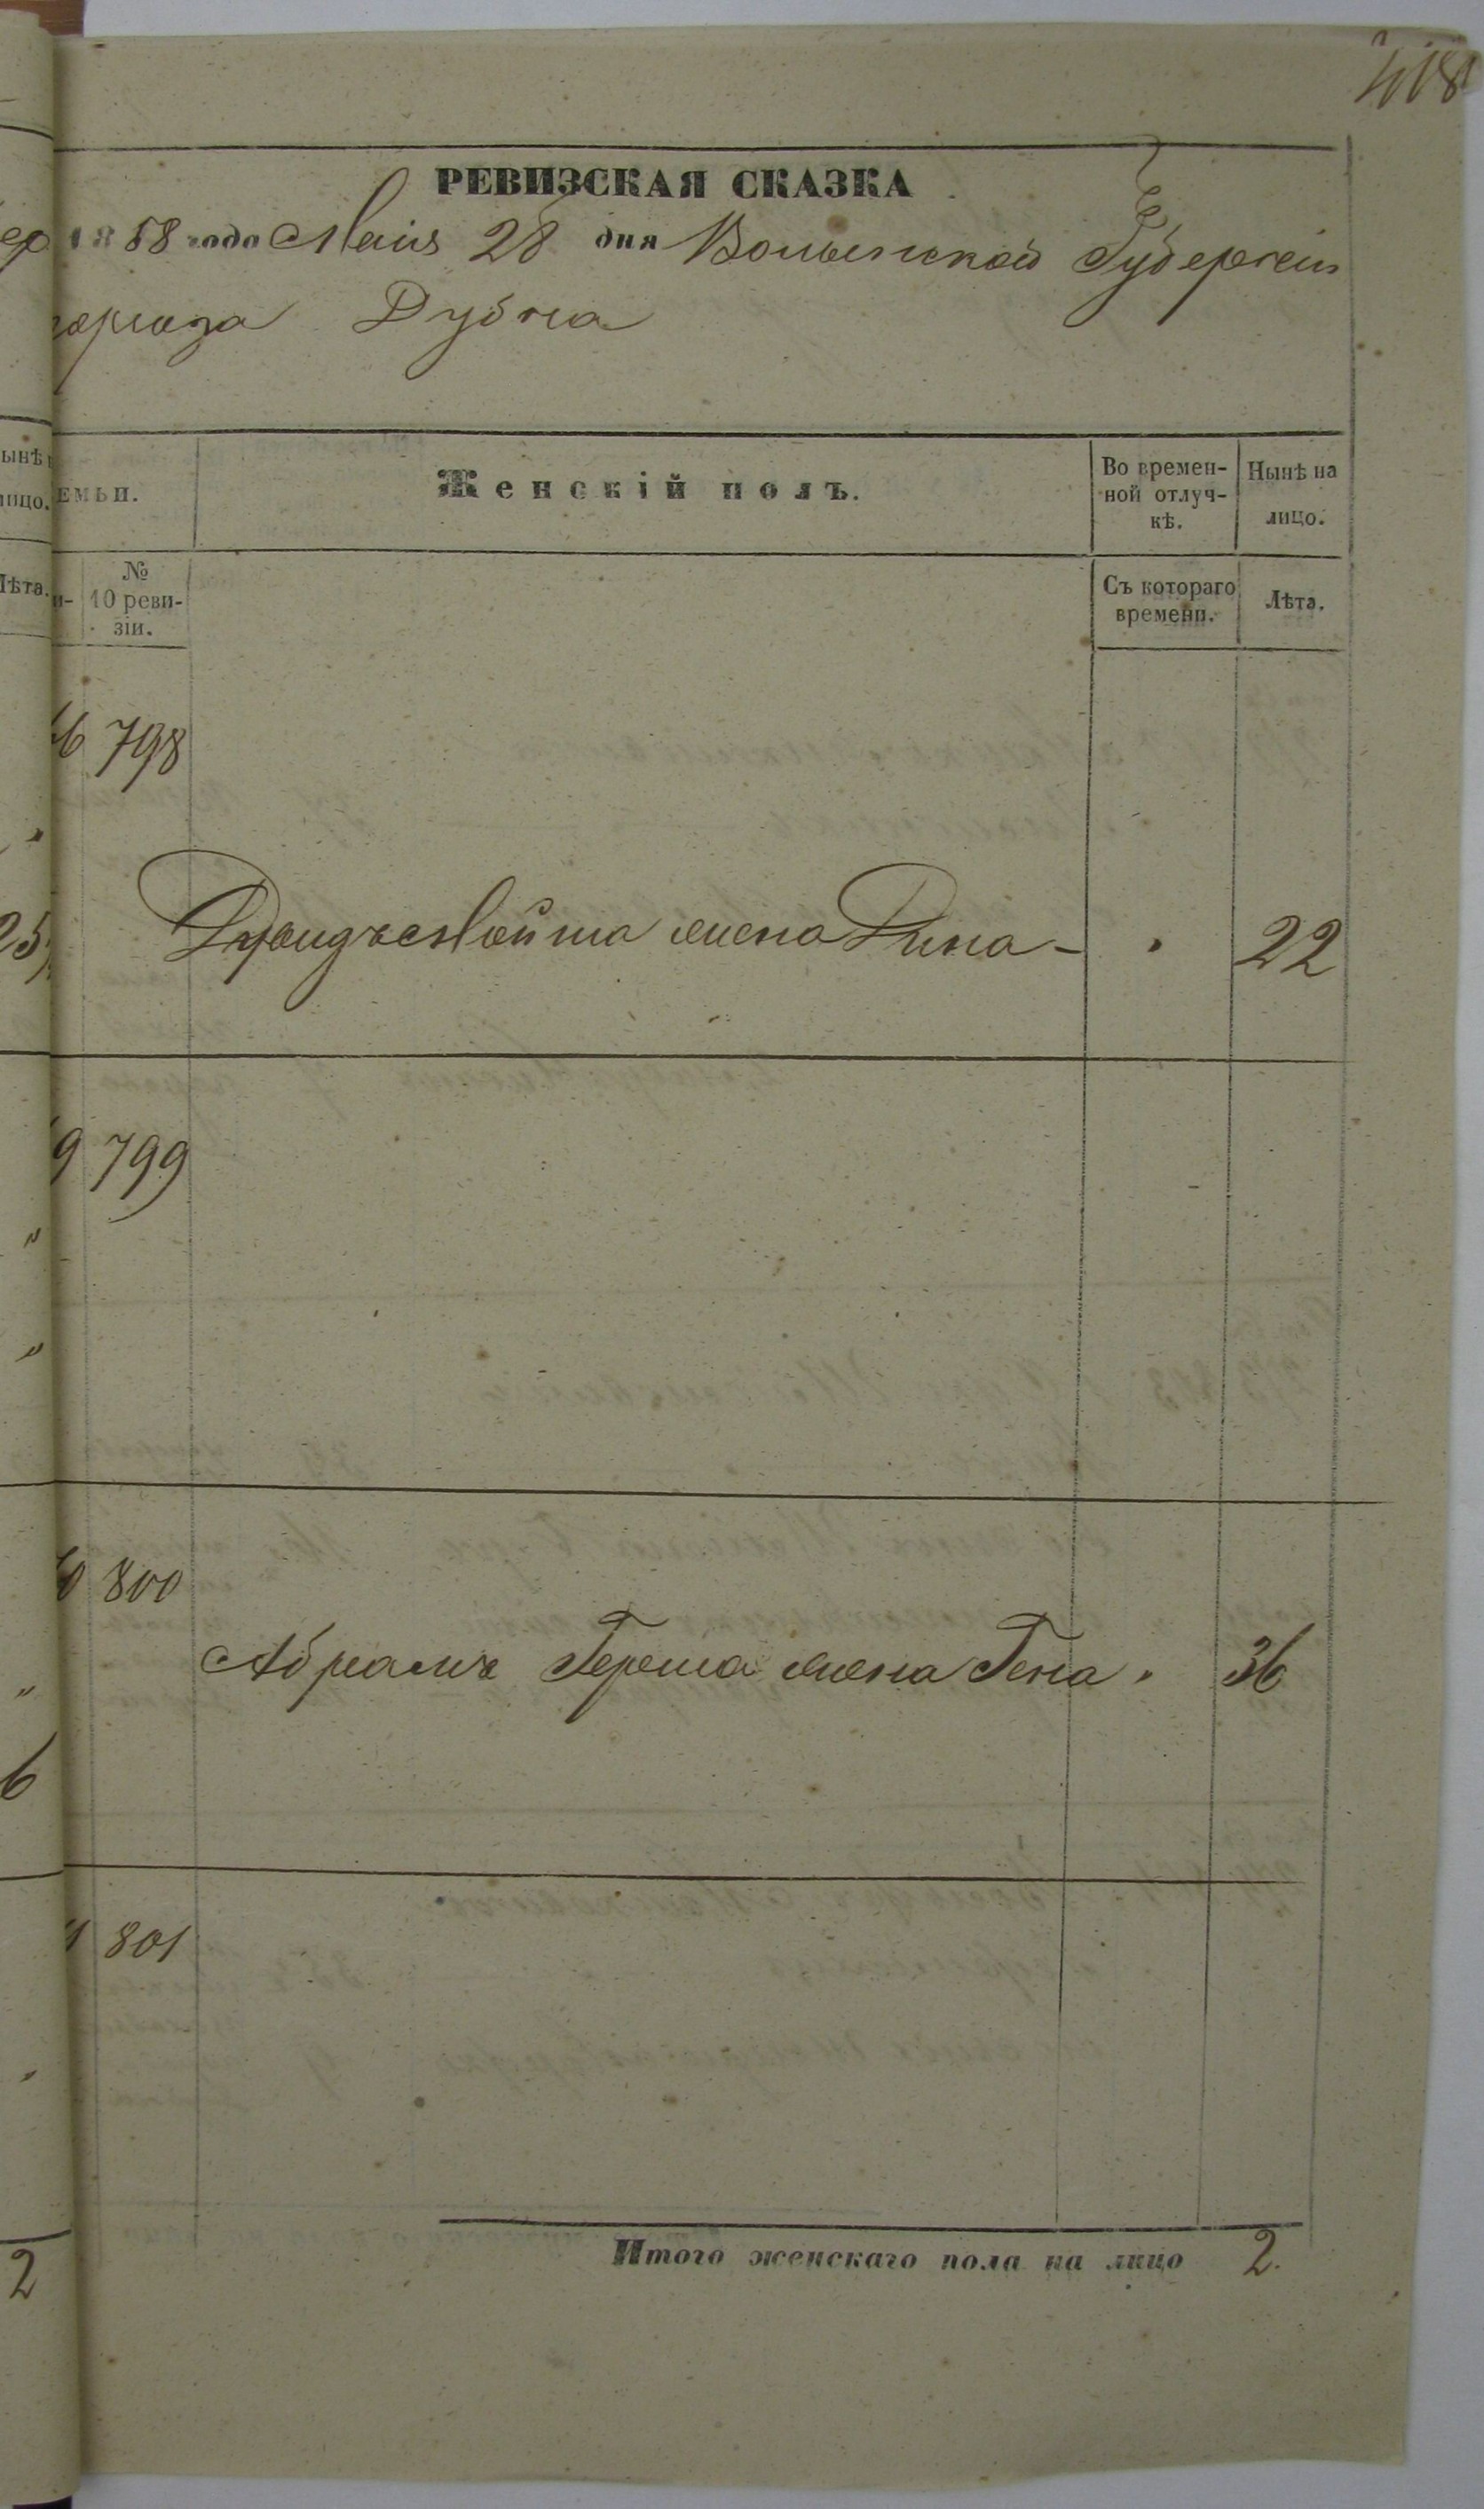 418
РЕВИЗСКАЯ СКАЗКА
1858 года Маія 28 дня Волынской Губерніи
города Дубна
ынѣ
лицо.
ЕМЬИ.
Женскій полъ.
Во времен-
ной отлуч-
кѣ.
Нынѣ на
лицо.
Лѣта.
№
10 реви-
зіи.
Съ котораго
времени.
Лѣта.
798
Мойша жена Дина - " 22
799
800
Абрамъ Герша жена Гена " 36
6
801
Итого женскаго пола на лицо 2.
2